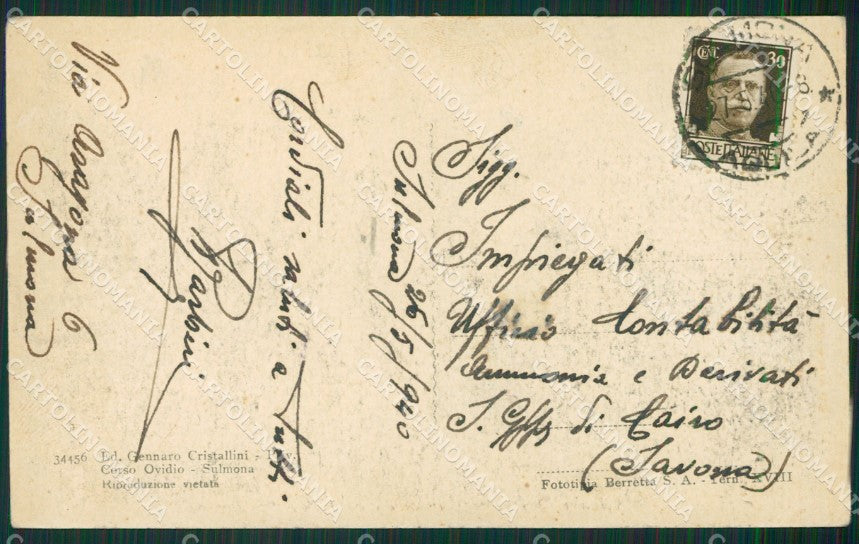 Via Aragona 6
Sulmona
Barbini
Cordiali saluti a tutti
Sulmona 26/5/940
Sigg.
Impiegati
Ufficio Contabilità
Ammonia e Derivati
S. Giuseppe di Cairo
(Savona)
CENT. 30
POSTE ITALIANE
34456 Ed. Gennaro Cristallini -
Corso Ovidio - Sulmona
Riproduzione vietata
Fototipia Berretta S. A. - Terni XVIII
CARTOLINOMANIA